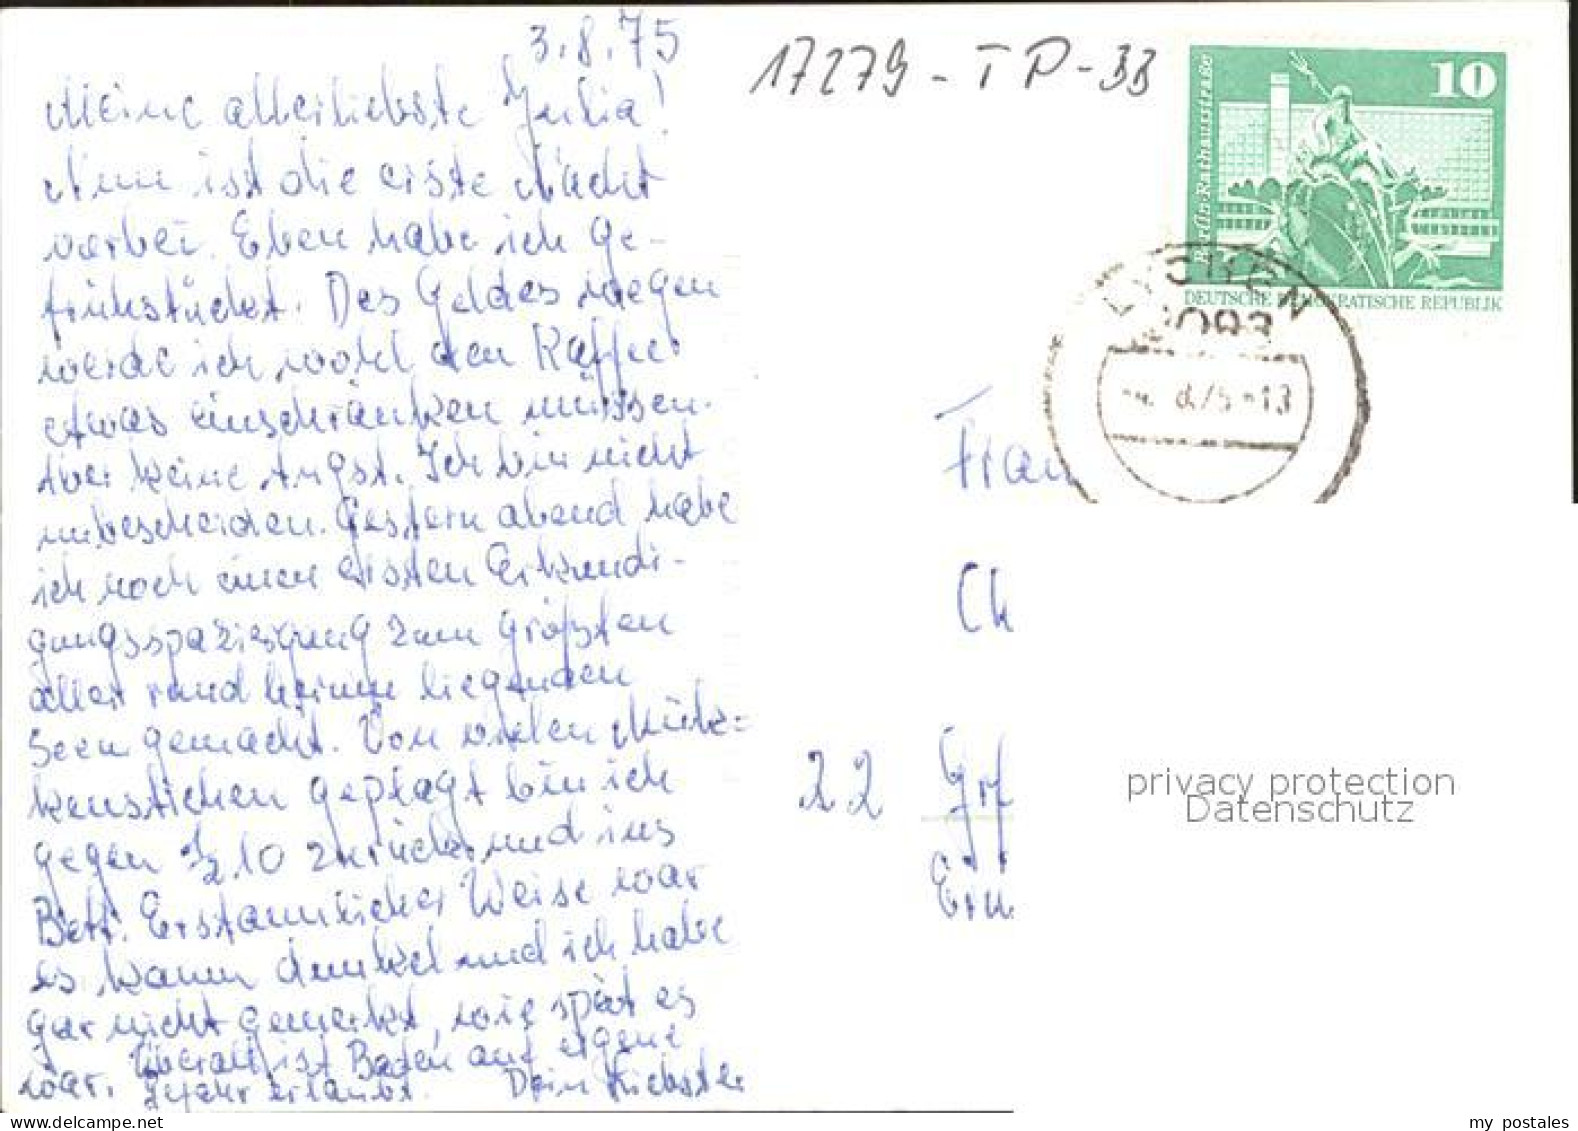 3.8.75
17279-TP-33
10
Berlin-Rathausstraße
DEUTSCHE DEMOKRATISCHE REPUBLIK
LYCHEN
2093
8.75-13
Meine allerliebste Julia!
Nun ist die erste Nacht
vorbei. Eben habe ich ge-
frühstückt. Des Geldes wegen
werde ich wohl den Kaffee
etwas einschränken müssen.
Aber keine Angst. Ich bin nicht
unbescheiden. Gestern abend habe
ich noch einen ersten Erkundi-
gungsspaziergang zum größten
aller rund herum liegenden
Seen gemacht. Von vielen Mük=
kenstichen geplagt bin ich
gegen 1/2 10 zurück und ins
Bett. Erstaunlicher Weise war
es kaum dunkel und ich habe
gar nicht gemerkt, wie spät es
war. Überall ist Baden auf eigene
Gefahr erlaubt. Dein Liebster
Frau
Ch
22 Grf
Ern
privacy protection
Datenschutz
www.delcampe.net
my_postales